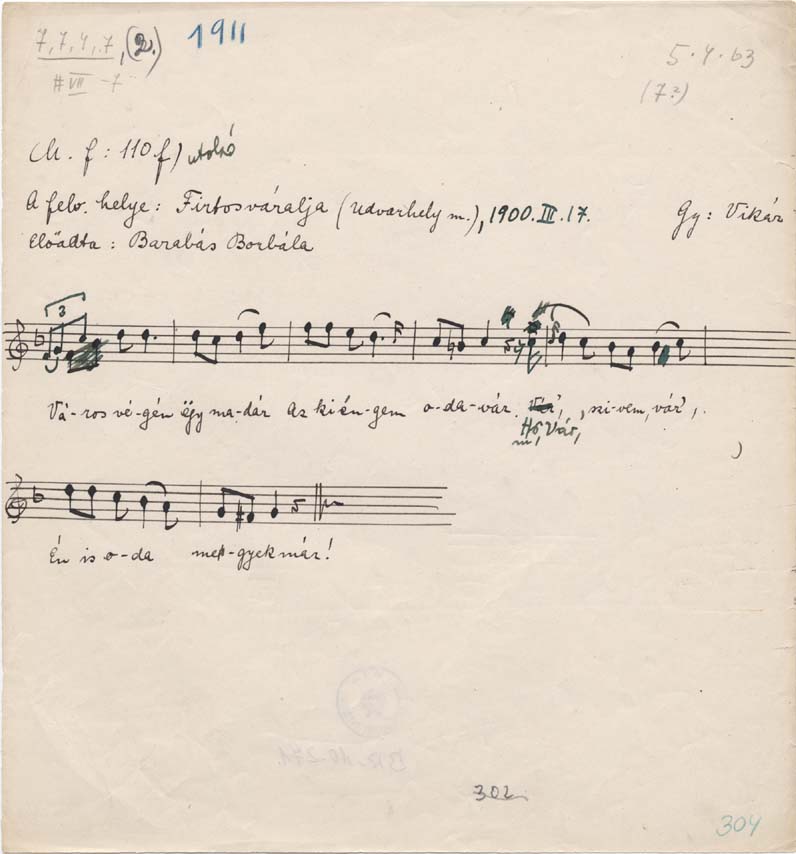 7, 7, 4, 7, (2.) 1911
# VII - 7
5. 4. 63
(7?)
M. f: 110.f) utolsó
A felv. helye: Firtosváralja (Udvarhely m.), 1900. III. 17. Gy: Vikár
Előadta: Barabás Borbála
3
Vá-ros vé-gén ëgy ma-dár Az ki én-gem o-da-vár szi-vem, vár,
Vár,
Én is o-da me-gyek már!
302
304